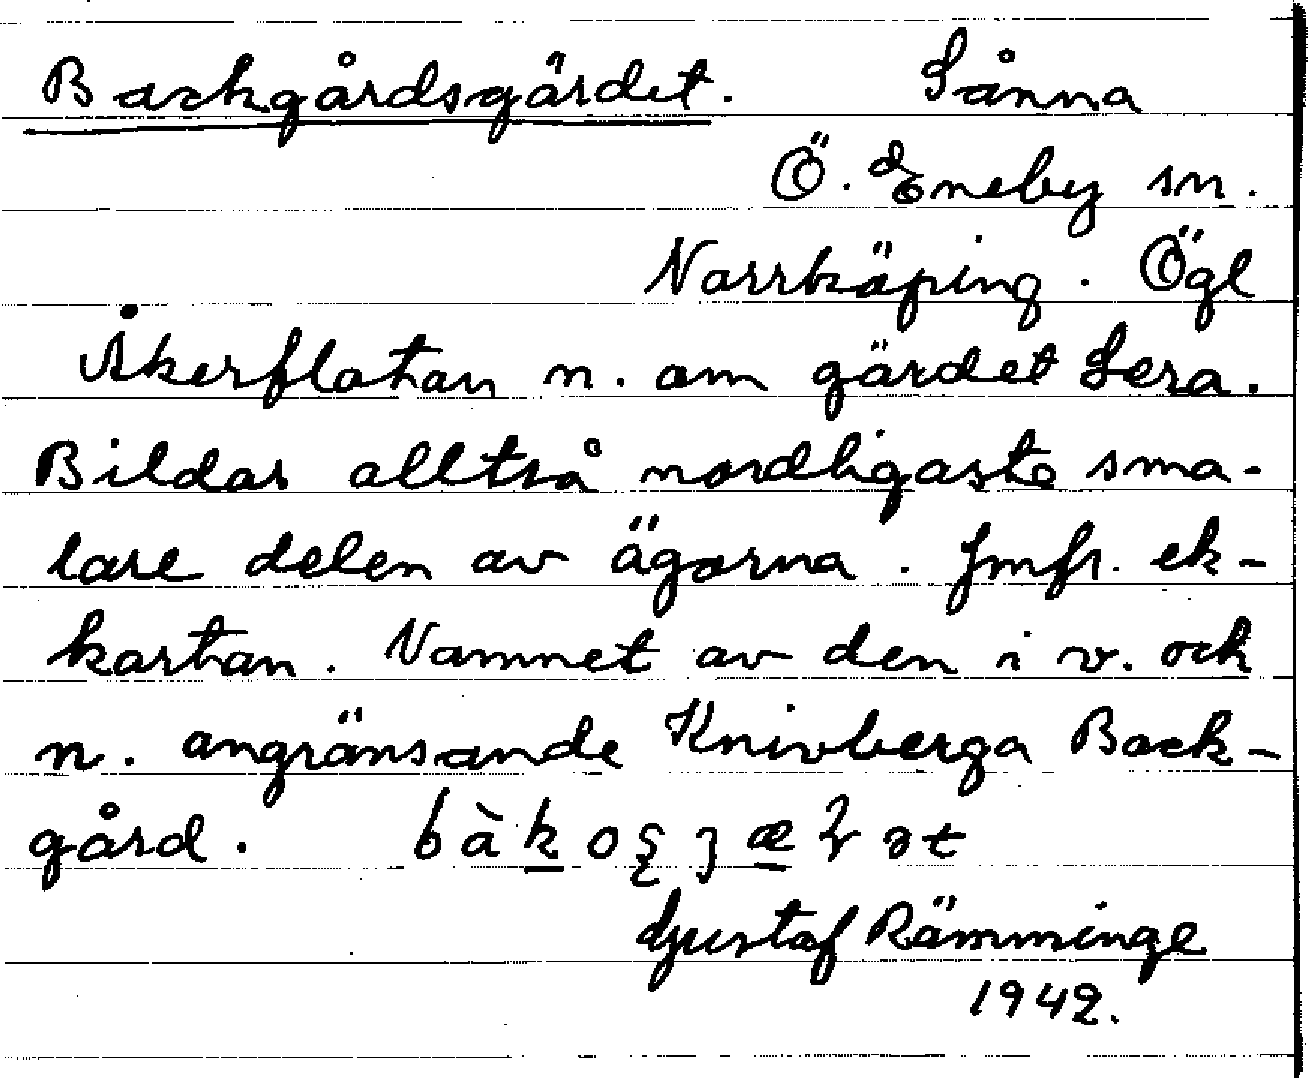 Backgårdsgärdet. Sånna
Ö. Eneby sn.
Norrköping. Ögl
Åkerflatan n. om gärdet Sera.
Bildar alltså nordligaste sma-
lare delen av ägorna. Jmfr. ek-
kartan. Namnet av den i v. och
n. angränsande Knivberga Back-
gård.
Gustaf Rämminge
1942.